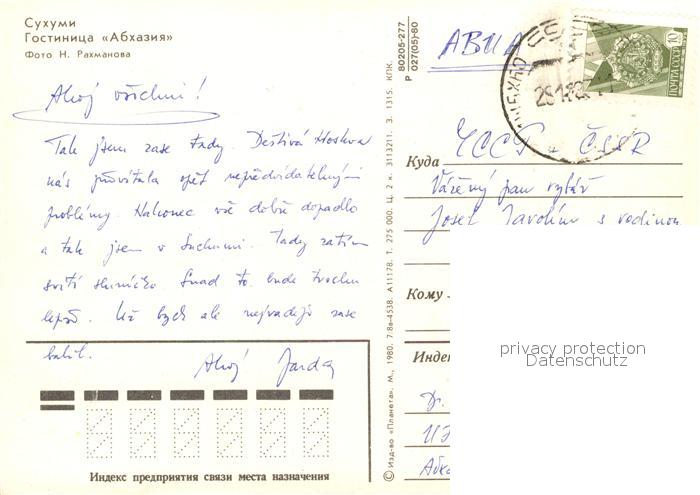 Сухуми
Гостиница «Абхазия»
Фото Н. Рахманова
Ahoj všichni!
Tak jsem zase tady. Deštivá Moskva
nás přivítala opět nepředvídatelnými
problémy. Nakonec vše dobře dopadlo
a tak jsem v Suchumi. Tady zatím
svítí sluníčko. Snad to bude trochu
lepší. Už bych ale nejraději zase
balil.
Ahoj Jarda
Индекс предприятия связи места назначения
© Изд-во «Планета». М., 1980. 7.8а-4538. А11178. Т. 275 000. Ц. 2 к. З. 1315. КПК.
80205-277
Р 027(05)-80
АВИА
ПОЧТА СССР
10
Куда ЧССР ČSSR
Vážený pan
Josef s rodinou
Кому
Индек
Dr.
privacy protection
Datenschutz